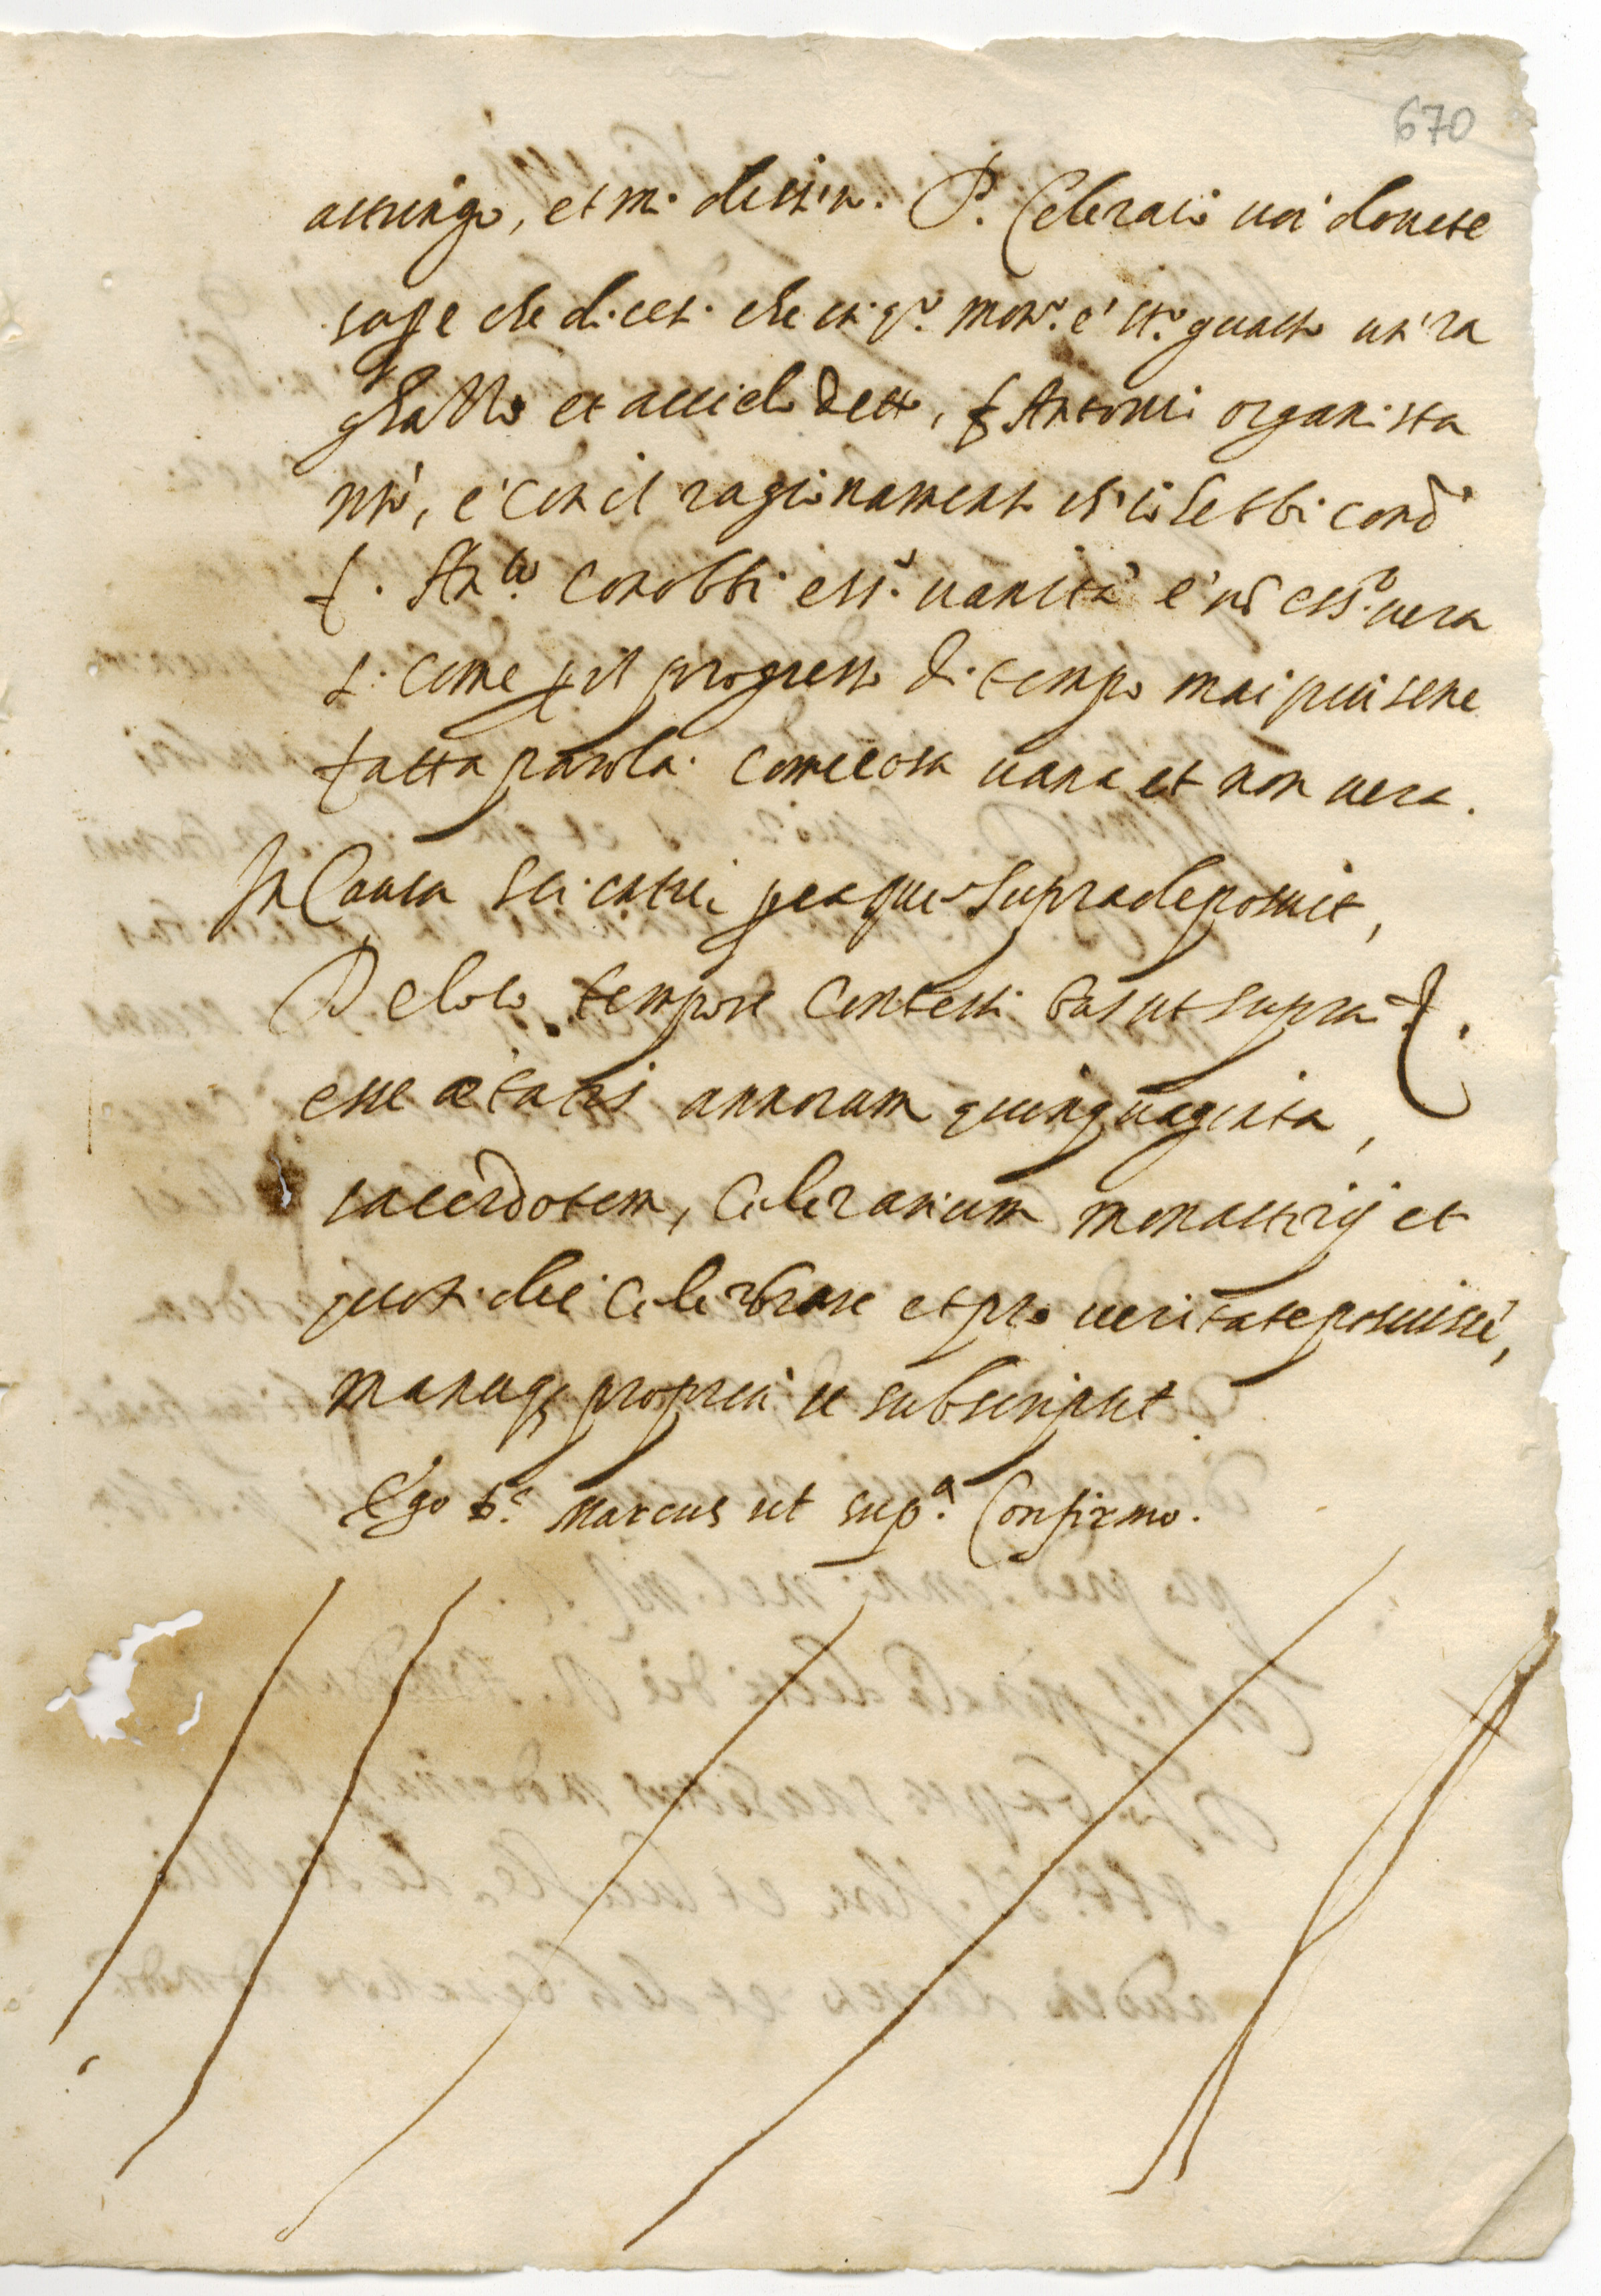 670
et mi dissi. P. Celeraio voi dovete
sap.e che dicesi che in q.o mon.o è st.o guasto un ra
ghazzo et a cciò detto, f. Antonio organista
nr̃o, e con il ragionamento ch'io hebbi con d.o
f. Ant.o conobbi ess.e vanità e nõ ess.e vera
si come p il progresso di tempo mai piu se ne
fatta parola come cosa vana et non vera.
In Causa scientiæ peaque supra deposuit,
De loco, tempore contesti bus ut supra
esse ætatis annorum quinquaginta,
sacerdotem, Celerarium monasterij et
quotidie celebrare et pro veritate posuisse,
manuq; propria se subscripsit
Ego D. Marcus ut sup.a Confirmo.